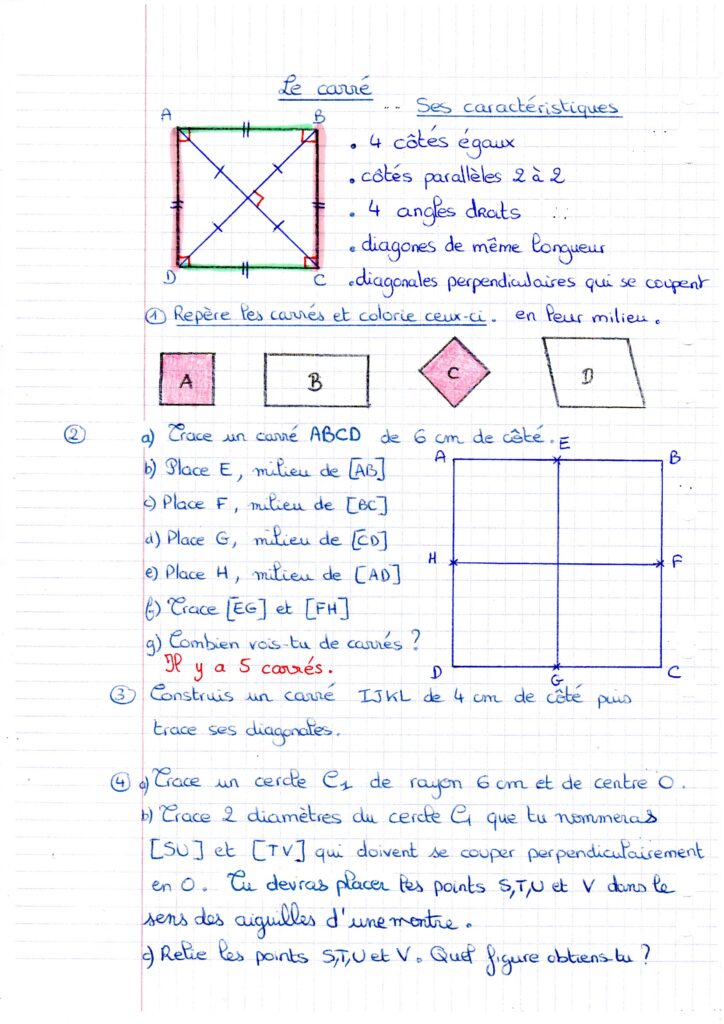 Le carré
Ses caractéristiques
A B
D C
. 4 côtés égaux
. côtés parallèles 2 à 2
. 4 angles droits
. diagones de même longueur
. diagonales perpendiculaires qui se coupent
en leur milieu.
① Repère les carrés et colorie ceux-ci.
A B C D
② a) Trace un carré ABCD de 6 cm de côté.
b) Place E, milieu de [AB]
c) Place F, milieu de [BC]
d) Place G, milieu de [CD]
e) Place H, milieu de [AD]
f) Trace [EG] et [FH]
g) Combien vois-tu de carrés ?
Il y a 5 carrés.
A E B
H F
D G C
③ Construis un carré IJKL de 4 cm de côté puis
trace ses diagonales.
④ a) Trace un cercle C1 de rayon 6 cm et de centre O.
b) Trace 2 diamètres du cercle C1 que tu nommeras
[SU] et [TV] qui doivent se couper perpendiculairement
en O. Tu devras placer les points S,T,U et V dans le
sens des aiguilles d'une montre.
c) Relie les points S,T,U et V. Quel figure obtiens-tu ?